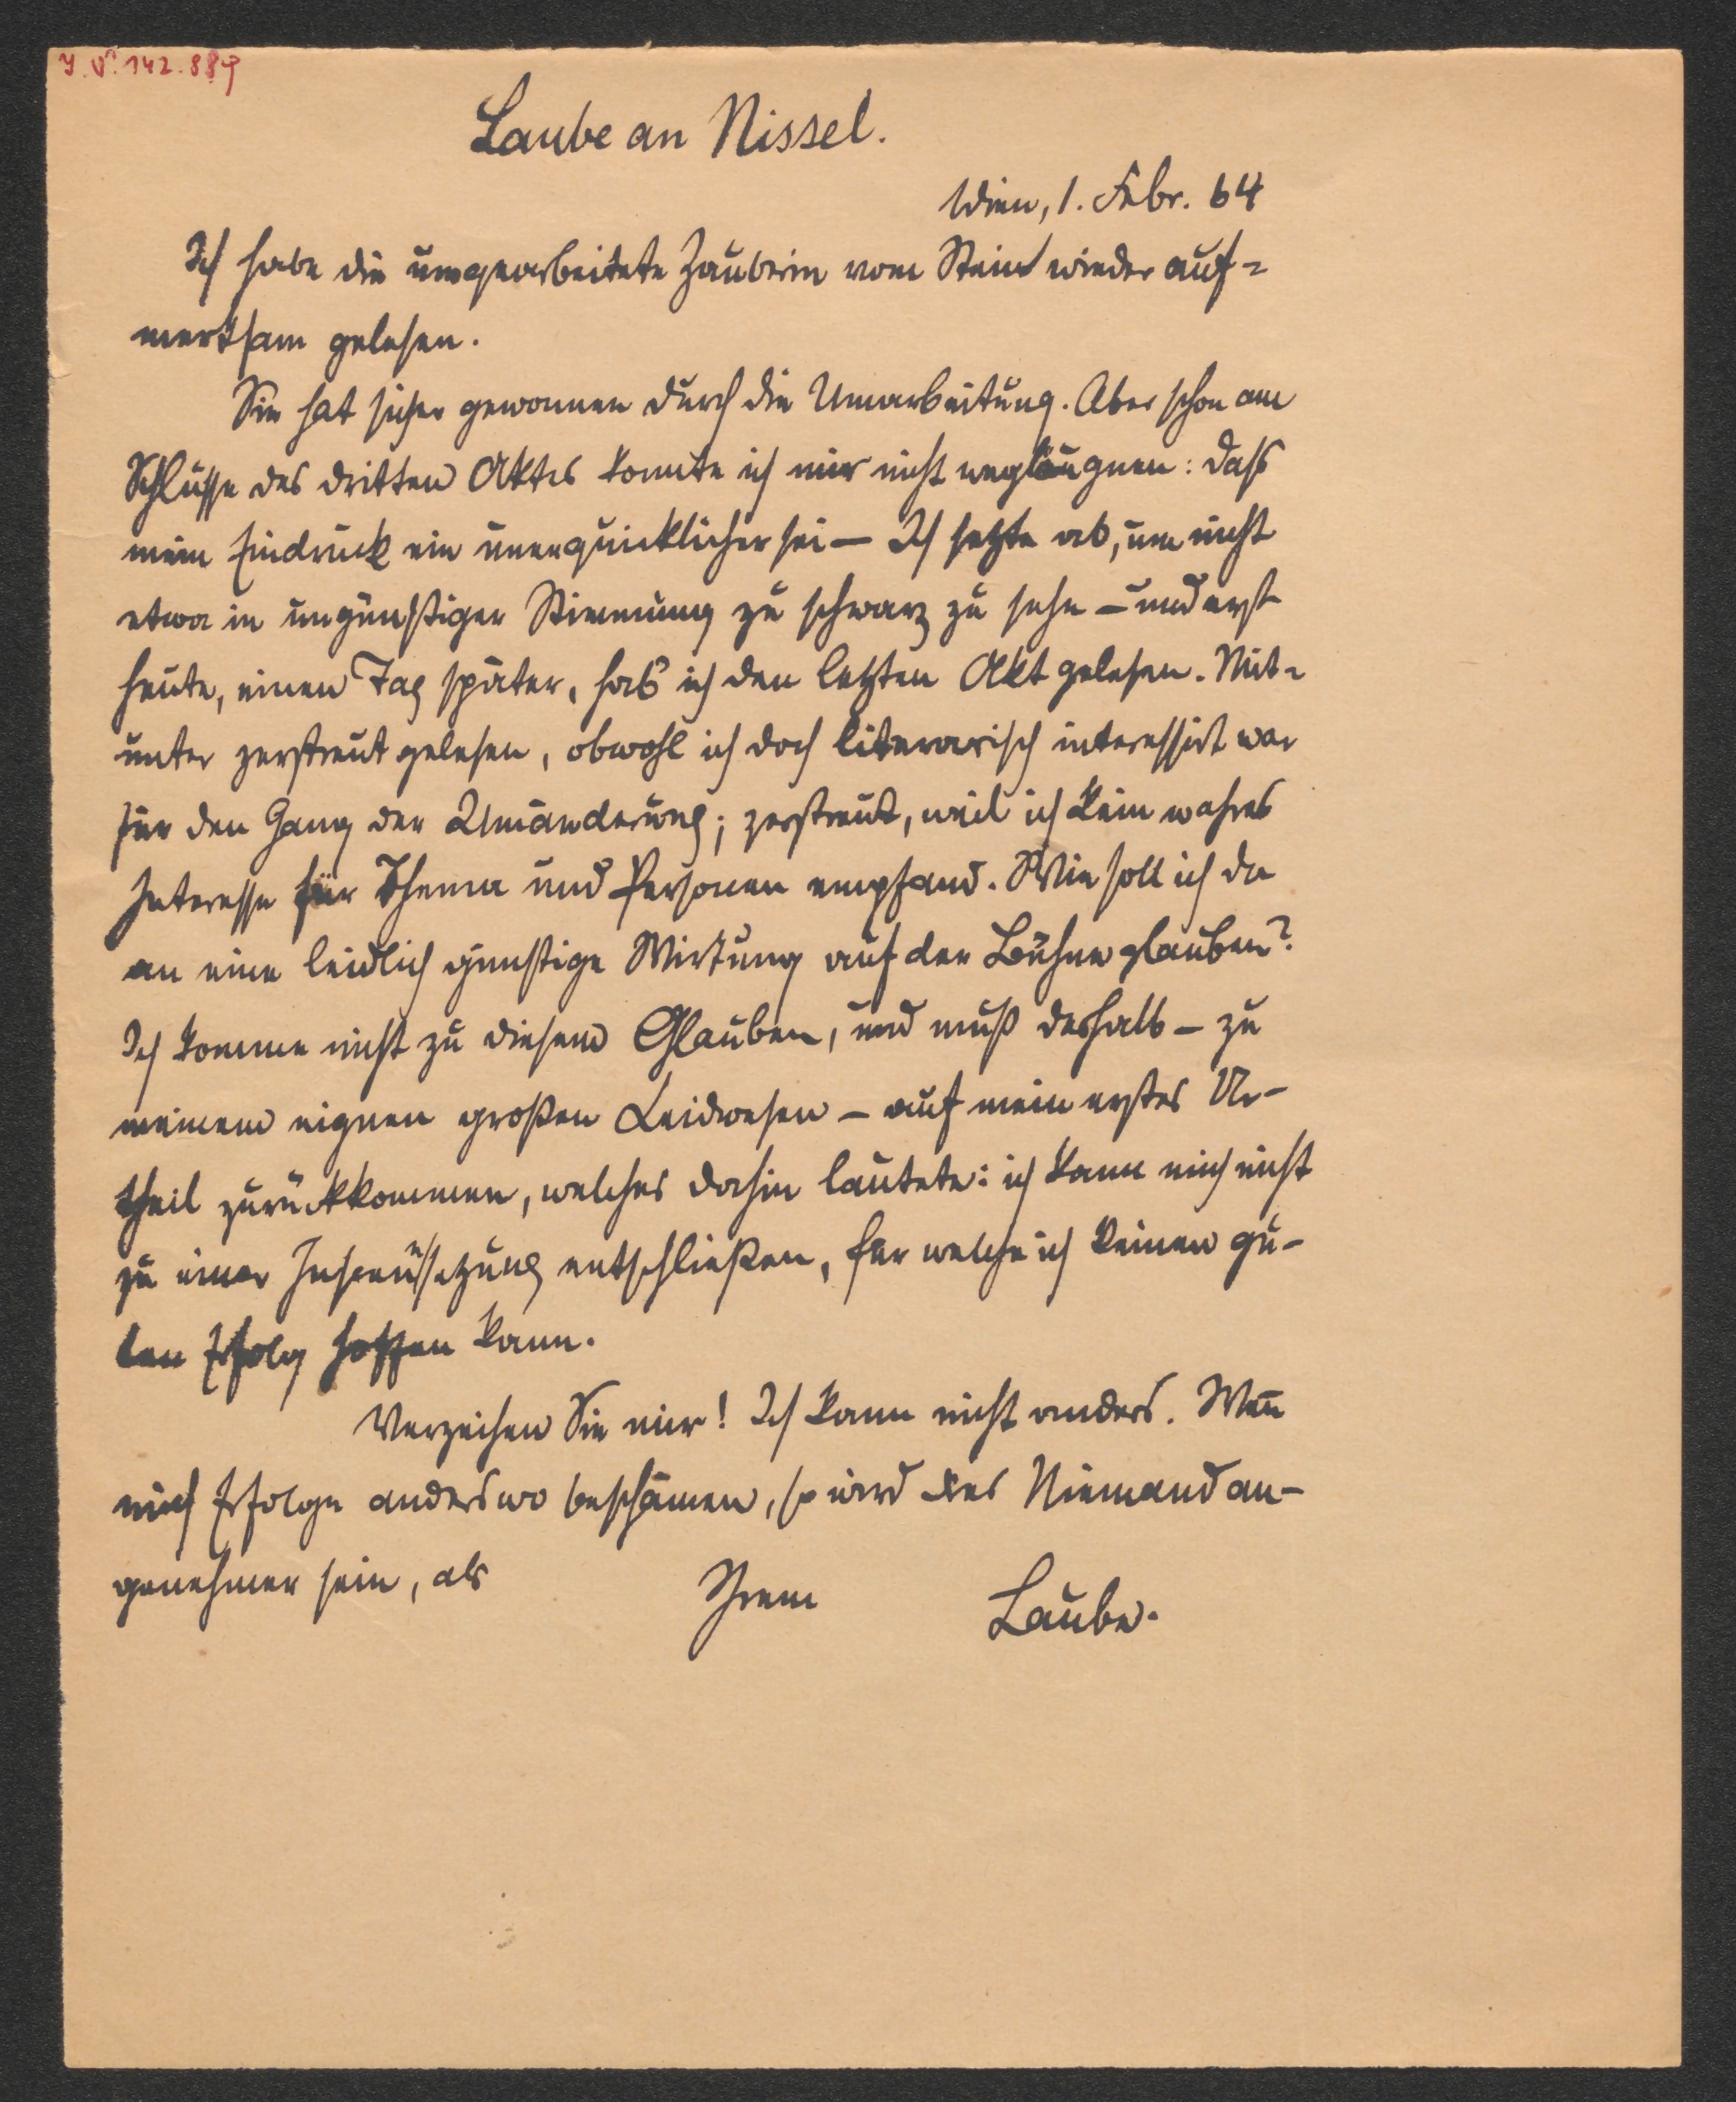 J. N. 142.889
Laube an Nissel.
Wien, 1. Febr. 64
Ich habe die umgearbeitete Zauberin vom Stein wieder auf=
merksam gelesen.
Sie hat sicher gewonnen durch die Umarbeitung. Aber schon am
Schlusse des dritten Aktes konnte ich mir nicht wegläugnen: daß
mein Eindruck ein unerquicklicher sei – Ich setzte ab, um nicht
etwa in ungünstiger Stimmung zu schwarz zu sehn – und erst
heute, einen Tag später, hab ich den letzten Akt gelesen. Mit=
unter zerstreut gelesen, obwohl ich doch literarisch interessirt war
für den Gang der Umänderung; zerstreut, weil ich kein wahres
Interesse für Thema und Personen empfand. Wie soll ich da
an eine leidlich günstige Wirkung auf der Bühne glauben?
Ich komme nicht zu diesem Glauben, und muß deshalb – zu
meinem eignen großen Leidwesen – auf mein erstes Ur-
theil zurückkommen, welches dahin lautete: ich kann mich nicht
zu einer Inscenüssetzung entschließen, für welche ich keinen gu-
ten Erfolg hoffen kann.
Verzeihen Sie mir! Ich kann nicht anders. Weñ
mich Erfolge anderswo beschämen, so wird das Niemand an-
genehmer sein, als
Ihrem
Laube.